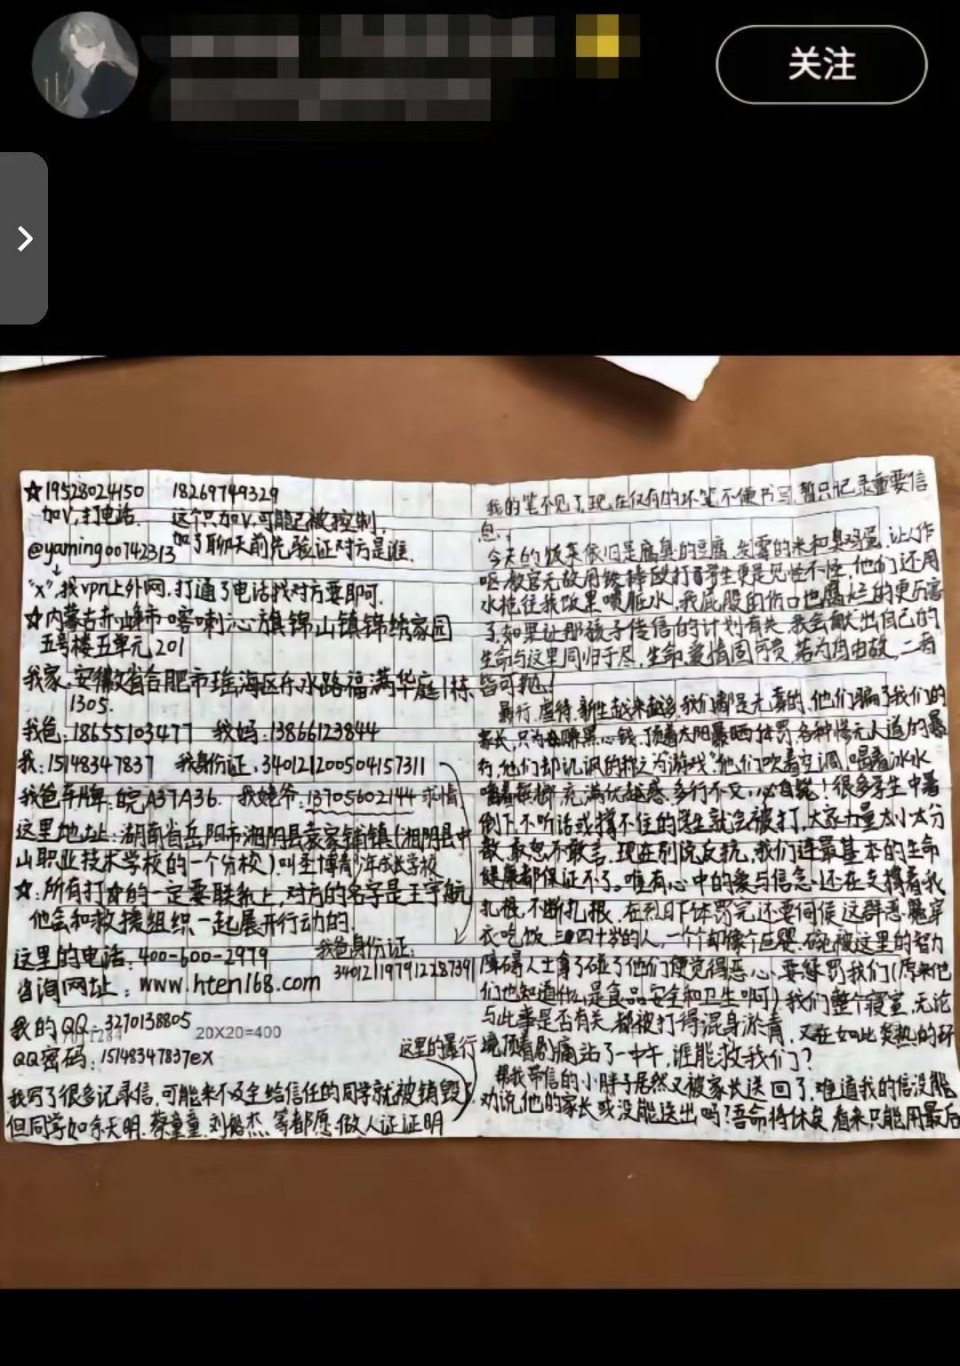 关注
☆19528024150 18269749329
加V,打电话. 这个只加V,可能已被控制,
加了聊天前先验证对方是谁.
@yaming00742313
"x",找vpn上外网,打通了电话找对方要即可.
☆内蒙古赤峰市喀喇沁旗锦山镇锦绣家园
五号楼五单元201
我家:安徽省合肥市瑶海区东水路福满华庭1栋
1305.
我爸:18655103477 我妈:13866123844
我:15148347837 我身份证:340121200504157311
我爸车牌:皖A37A36. 我姥爷:13705602144求情
这里地址:湖南省岳阳市湘阴县袁家铺镇(湘阴县中
山职业技术学校的一个分校)叫至博青少年成长学校
☆:所有打☆的一定要联系上,对方的名字是王宇航
他会和救援组织一起展开行动的.
这里的电话:400-600-2979 我爸身份证:
340121197912287391
咨询网址:www.hten168.com
我的QQ:3270138805
20X20=400
QQ密码:15148347837ex 这里的暴行
我写了很多记录信,可能来不及全给信任的同学就被销毁了
但同学如余天明,蔡童童,刘皓杰,等都愿做人证证明
我的笔不见了,现在仅有的坏笔不便书写,暂只记录重要信
息,
今天的饭菜依旧是腐臭的豆腐,发霉的米和臭鸡蛋,让人作
呕,教官无故用棍棒殴打学生更是见怪不怪,他们还用
水枪往我饭里喷脏水,我屁股的伤口也腐烂的更厉害
了,如果让那孩子传信的计划有失,我会献出自己的
生命与这里同归于尽,生命,爱情固可贵,若为自由故,二者
皆可抛!
暴行,虐待,新生越来越多,我们都是无辜的,他们骗了我们的
家长,只为赚黑心钱,顶着太阳暴晒体罚,各种惨无人道的暴
行,他们却讥讽的称之为游戏,他们吹着空调,喝着冰水
嚼着槟榔,充满优越感,多行不义,必自毙!很多学生中暑
倒下,不听话或撑不住的学生就会被打,大家力量太小太分
散,敢怒不敢言,现在别说反抗,我们连最基本的生命
健康都保证不了.唯有心中的爱与信念,还在支撑着我
扎根,不断扎根,在烈日下体罚完还要伺候这群恶魔穿
衣吃饭,三四十岁的人,一个个却像个巨婴,碗被这里的智力
障碍人士拿了碰了他们便觉得恶心,要惩罚我们(原来他
们也知道什么是食品安全和卫生啊)我们整个寝室,无论
与此事是否有关,都被打得浑身淤青,又在如此炎热的环
境顶着剧痛站了一中午,谁能救我们?
帮我带信的小胖子居然又被家长送回了,难道我的信没能
劝说他的家长或没能送出吗?吾命将休矣,看来只能用最后